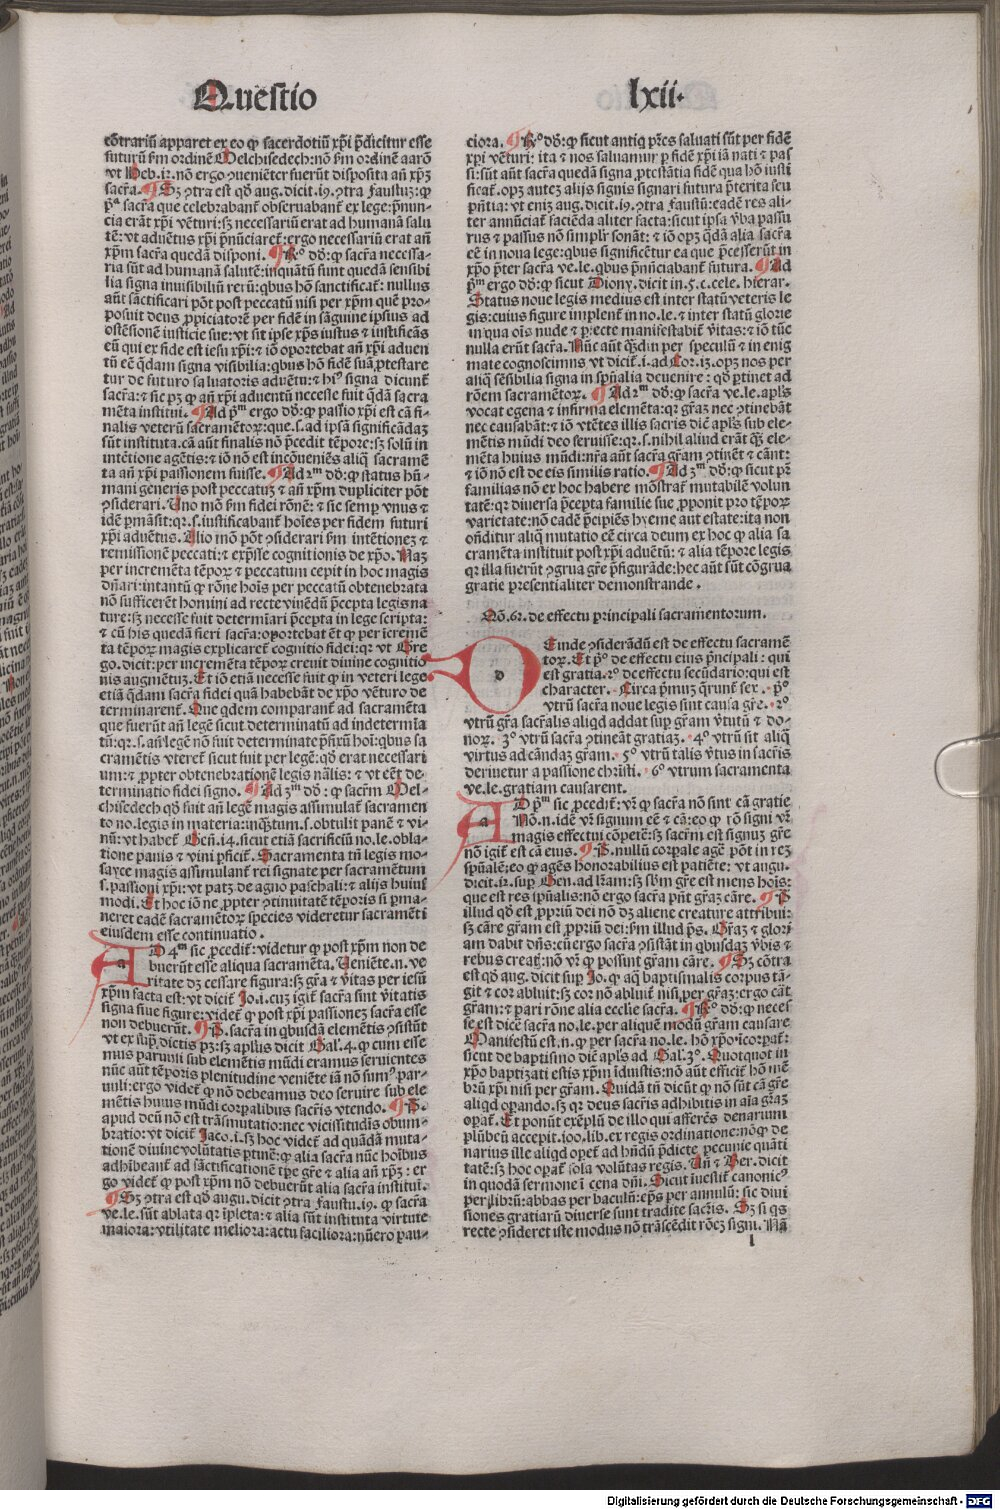 Questio
lxii.
cōtrariū apparet ex eo ꝙ sacerdotiū xp̄i p̄dicitur esse
futurū ẜm ordinē Melchisedech: nō ẜm ordinē aarō
vt Heb. ix. nō ergo ꝯueniēter fuerūt disposita añ xp̄ꝫ
sacr̄a. ¶ Sꝫ ꝯtra est qd̄ aug. dicit. 19. ꝯtra faustuꝫ: ꝙ
p̄ᵃ sacr̄a que celebrabant̄ obseruabant̄ ex lege: p̄nun-
cia erāt xp̄i vēturi: sꝫ necessariū erat ad humanā salu
tē: vt aduētus xp̄i p̄nūciaret̄: ergo necessariū erat añ
xp̄m sacr̄a quedā disponi. ¶ Rº dd̄: ꝙ sacr̄a necessa-
ria sūt ad humanā salutē: inquātū sunt quedā sensibi
lia signa inuisibiliū rerū: quibus hō sanctificat̄: nullus
aūt sāctificari pōt post peccatū nisi per xp̄m quē pro-
posuit deus ꝓpiciatorē per fidē in sāguine ipsius ad
ostēsionē iusticie sue: vt sit ipse xp̄s iustus ⁊ iustificās
eū qui ex fide est iesu xp̄i: ⁊ iō oportebat añ xp̄i aduen
tū eē q̄dam signa visibilia: qbus hō fidē suā ꝓtestare
tur de futuro saluatoris aduētu: ⁊ hiꝰ signa dicunt̄
sacr̄a: ⁊ sic pꝫ ꝙ añ xp̄i aduentū necesse fuit q̄dā sacra
mēta institui. ¶ Ad p̄ᵐ ergo dd̄: ꝙ passio xp̄i est cā fi-
nalis veterū sacramētoꝝ: que. s. ad ipsā significādaꝫ
sūt instituta. cā aūt finalis nō p̄cedit tēpore: sꝫ solū in
intētione agētis: ⁊ iō nō est incōueniēs aliq̄ sacramē
ta añ xp̄i passionem fuisse. ¶ Ad 2ᵐ dd̄: ꝙ status hu-
mani generis post peccatuꝫ ⁊ añ xp̄m dupliciter pōt
ꝯsiderari. Uno mō ẜm fidei rōnē: ⁊ sic semꝑ vnus ⁊
idē ꝑmāsit: qꝛ. s. iustificabant̄ hoīes per fidem futuri
xp̄i aduētus. Alio mō pōt ꝯsiderari ẜm intētionez ⁊
remissionē peccati: ⁊ exp̄sse cognitionis de xp̄o. Naꝫ
per incremēta tēpoꝝ ⁊ peccatum cepit in hoc magis
dn̄ari: intantū ꝙ rōne hoīs per peccatū obtenebrata
nō sufficerēt homini ad recte viuēdū p̄cepta legis na
ture: sꝫ necesse fuit determīari p̄cepta in lege scripta:
⁊ cū his quedā fieri sacr̄a: oportebat ēt ꝙ per icremē
ta tēpoꝝ magis explicaret̄ cognitio fidei: qꝛ vt Gre
go. dicit: per incremēta tēpoꝝ creuit diuine cognitio
nis augmētuꝫ. Et iō etiā necesse fuit ꝙ in veteri lege
etiā q̄dam sacr̄a fidei quā habebāt de xp̄o vēturo de
terminarent̄. Que qdem comparant̄ ad sacramēta
que fuerūt añ legē sicut determinatū ad indetermīa
tū: qꝛ. s. añ legē nō fuit determinate p̄fixū hoī: qbus sa
cramētis vteret̄ sicut fuit per legē: qd̄ erat necessari
um: ⁊ ꝓpter obtenebrationē legis nālis: ⁊ vt eēt de-
terminatio fidei signo. ¶ Ad 3ᵐ dd̄: ꝙ sacrm̄ Mel-
chisedech qd̄ fuit añ legē magis assimulat̄ sacramen
to no. legis in materia: inq̄ꝫtum. s. obtulit panē ⁊ vi-
nū: vt habet̄ Gen. 14. sicut etiā sacrificiū no. le. obla-
tione panis ⁊ vini ꝑficit̄. Sacramenta tn̄ legis mo-
sayce magis assimulant̄ rei signate per sacramētum
s. passioni xp̄i: vt patꝫ de agno paschali: ⁊ alijs huiuſ
modi. Et hoc iō ne ꝓpter ꝯtinuitatē tēporis si ꝑma-
neret eadē sacramētoꝝ species videretur sacramēti
eiusdem esse continuatio.
AD 4ᵐ sic ꝓcedit̄: videtur ꝙ post xp̄m non de
buerūt esse aliqua sacramēta. Ueniēte. n. ve
ritate dꝫ cessare figura: sꝫ gr̄a ⁊ v̄itas per iesū
xp̄m facta est: vt dicit̄ Jo. i. cuꝫ igit̄ sacr̄a sint v̄itatis
signa siue figure: videt̄ ꝙ post xp̄i passionez sacr̄a esse
non debuerūt. ¶ P. sacr̄a in qbusdā elemētis ꝯsistūt
vt ex sup̄. dictis pꝫ: sꝫ apl̄us dicit Gal̄. 4. ꝙ cum esse
mus paruuli sub elemētis mūdi eramus seruientes
nūc aūt tēporis plenitudine veniēte iā nō sumꝰ par-
uuli: ergo videt̄ ꝙ nō debeamus deo seruire sub ele
mētis huius mūdi corꝑalibus sacr̄is vtendo. ¶ P.
apud deū nō est trāsmutatio: nec vicissitudis obum-
bratio: vt dicit̄ Jaco. i. sꝫ hoc videt̄ ad quādā muta-
tionē diuine volūtatis ꝑtinē: ꝙ alia sacr̄a nūc hoībus
adhibeant̄ ad sāctificationē tp̄e gr̄e ⁊ alia añ xp̄ꝫ: er
go videt̄ ꝙ post xp̄m nō debuerūt alia sacr̄a institui.
¶ Sꝫ ꝯtra est qd̄ augu. dicit ꝯtra faustū. 19. ꝙ sacr̄a
ve. le. sūt ablata qꝛ īpleta: ⁊ alia sūt instituta virtute
maiora: vtilitate meliora: actu faciliora: nūero pau-
ciora. ¶ Rº dd̄: ꝙ sicut antiq̄ pr̄es saluati sūt per fidē
xp̄i vēturi: ita ⁊ nos saluamur ꝑ fidē xp̄i iā nati ⁊ pas
si: sūt aūt sacr̄a quedā signa ꝓtestātia fidē qua hō iusti
ficat̄. opꝫ autez alijs signis signari futura p̄terita seu
p̄ntia: vt eniꝫ aug. dicit. 19. ꝯtra faustū: eadē res ali-
ter annūciat̄ faciēda aliter facta: sicut ipsa v̄ba passu
rus ⁊ passus nō simplr̄ sonāt: ⁊ iō opꝫ q̄dā alia sacr̄a
eē in noua lege: qbus significētur ea que p̄cesserūt in
xp̄o p̄ter sacr̄a ve. le. qbus p̄nn̄ciabant̄ futura. ¶ Ad
p̄ᵐ ergo dd̄: ꝙ sicut Diony. dicit in. 5. c. cele. hierar.
Status noue legis medius est inter statū veteris le
gis: cuius figure implent̄ in no. le. ⁊ inter statū glorie
in qua oīs nude ⁊ ꝑfecte manifestabit̄ v̄itas: ⁊ iō tūc
nulla erūt sacr̄a. Nūc aūt q̄ꝫdiu per speculū ⁊ in enig
mate cognoscimus vt dicit̄. i. ad Cor. 13. opꝫ nos per
aliq̄ sēsibilia signa in sp̄nalia deuenire: qd̄ ꝑtinet ad
rōem sacramētoꝝ. ¶ Ad 2ᵐ dd̄: ꝙ sacr̄a ve. le. apl̄s
vocat egena ⁊ infirma elemēta: qꝛ gr̄aꝫ nec ꝯtinebāt
nec causabāt: ⁊ iō vtētes illis sacris diē apl̄s sub ele-
mētis mūdi deo seruisse: qꝛ. s. nihil aliud erāt q̄ꝫ ele-
mēta huius mūdi: nr̄a aūt sacr̄a gr̄am ꝯtinēt ⁊ cānt:
⁊ iō nō est de eis similis ratio. ¶ Ad 3ᵐ dd̄: ꝙ sicut pr̄
familias nō ex hoc habere mōstrat̄ mutabilē volun
tatē: qꝛ diuersa p̄cepta familie sue ꝓponit pro tēpoꝝ
varietate: nō eadē p̄cipiēs hyeme aut estate: ita non
oñditur aliq̄ mutatio eē circa deum ex hoc ꝙ alia sa
cramēta instituit post xp̄i aduētū: ⁊ alia tēpore legis
qꝛ illa fuerūt ꝯgrua gr̄e p̄figurāde: hec aūt sūt cōgrua
gratie presentialiter demonstrande.
Qō. 62. de effectu principali sacramentorum.
DEinde ꝯsiderādū est de effectu sacramē
toꝝ. Et p̄º de effectu eius p̄ncipali: qui
est gratia. 2º de effectu secūdario: qui est
character. Circa p̄muꝫ q̄runt̄ sex. p̄º
vtrū sacr̄a noue legis sint causa gr̄e. 2º
vtrū gr̄a sacr̄alis aliqd addat suꝑ gr̄am v̄tutū ⁊ do-
noꝝ. 3º vtrū sacr̄a ꝯtineāt gratiaꝫ. 4º vtrū sit aliq̄
virtus ad cāndaꝫ gr̄am. 5º vtrū talis v̄tus in sacr̄is
deriuetur a passione christi. 6º vtrum sacramenta
ve. le. gratiam causarent.
AD p̄ᵐ sic ꝓcedit̄: vr̄ ꝙ sacr̄a nō sint cā gratie
Nō. n. idē vr̄ signum eē ⁊ cā: eo ꝙ rō signi vr̄
magis effectui cōpetē: sꝫ sacrm̄ est signuꝫ gr̄e
nō igit̄ est cā eius. ¶ P. nullū corꝑale agē pōt in reꝫ
spūalē: eo ꝙ agēs honorabilius est patiēte: vt augu.
dicit. 12. sup̄ Gen. ad lr̄am: sꝫ sbm̄ gr̄e est mens hoīs:
que est res ip̄ualis: nō ergo sacr̄a pn̄t gr̄aꝫ cāre. ¶ P
illud qd̄ est ꝓpriū dei nō dꝫ aliene creature attribui:
sꝫ cāre gr̄am est ꝓpriū dei: ẜm illud ps̄. Gr̄aꝫ ⁊ glori
am dabit dn̄s: cū ergo sacr̄a ꝯsistāt in qbusdaꝫ v̄bis ⁊
rebus creat̄: nō vr̄ ꝙ possunt gr̄am cāre. ¶ Sꝫ cōtra
est qd̄ aug. dicit sup̄ Jo. ꝙ aq̄ baptismalis corpus tā-
git ⁊ cor abluit: sꝫ cor nō abluit̄ nisi per gr̄aꝫ: ergo cāt
gr̄am: ⁊ pari rōne alia ecclie sacr̄a. ¶ Rº dd̄: ꝙ neces
se est dicē sacr̄a no. le. per aliquē modū gr̄am causare
Manifestū est. n. ꝙ per sacr̄a no. le. hō xp̄o icorꝑat̄:
sicut de baptismo diē apl̄s ad Gal̄. 3º. Quotquot in
xp̄o baptizati estis xp̄m īduistis: nō aūt efficit̄ hō mē
brū xp̄i nisi per gr̄am. Quidā tn̄ dicūt ꝙ nō sūt cā gr̄e
aliqd oꝑando. sꝫ qꝛ deus sacr̄is adhibitis in aīa gr̄aꝫ
oꝑat̄. Et ponūt exēplū de illo qui afferēs denarium
plūbeū accepit. 100. lib. ex regis ordinatione: nō ꝙ de
narius ille aliqd oꝑet̄ ad hn̄dū p̄dicte pecunie quāti
tatē: sꝫ hoc oꝑat̄ sola volūtas regis. Uñ ⁊ Ber. dicit
in quodā sermone ī cena dn̄i. Sicut īuestit̄ canonicꝰ
per librū: abbas per baculū: ep̄s per annulū: sic diui
siones gratiarū diuerse sunt tradite sacr̄is. Sꝫ si qs
recte ꝯsideret iste modus nō trāscēdit rōeꝫ signi. Nā
l
Digitalisierung gefördert durch die Deutsche Forschungsgemeinschaft - DFG